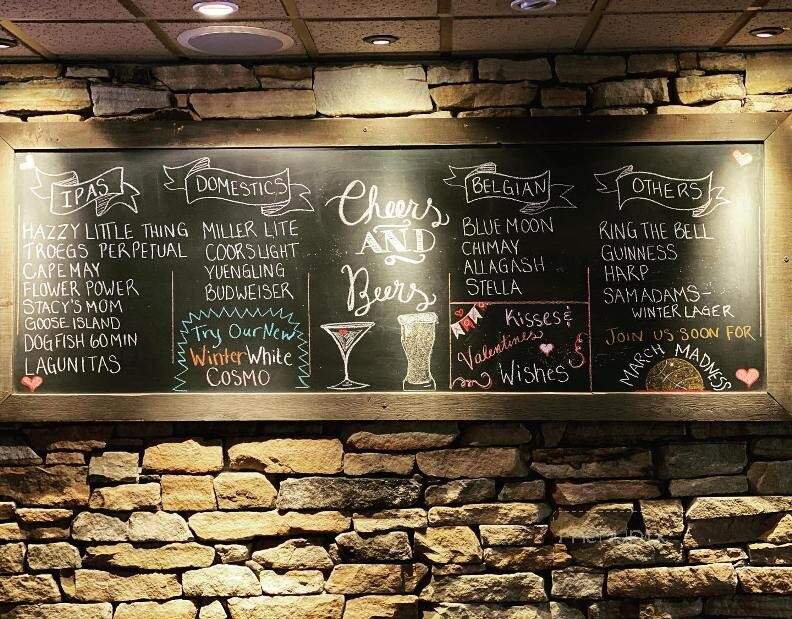 IPAS
HAZZY LITTLE THING
TROEGS PERPETUAL
CAPE MAY
FLOWER POWER
STACY'S MOM
GOOSE ISLAND
DOGFISH 60 MIN
LAGUNITAS
DOMESTICS
MILLER LITE
COORS LIGHT
YUENGLING
BUDWEISER
Try Our New
Winter White
COSMO
Cheers
AND
Beers
BELGIAN
BLUE MOON
CHIMAY
ALLAGASH
STELLA
Kisses &
Valentines
Wishes
OTHERS
RING THE BELL
GUINNESS
HARP
SAM ADAMS-
WINTER LAGER
JOIN US SOON FOR
MARCH MADNESS